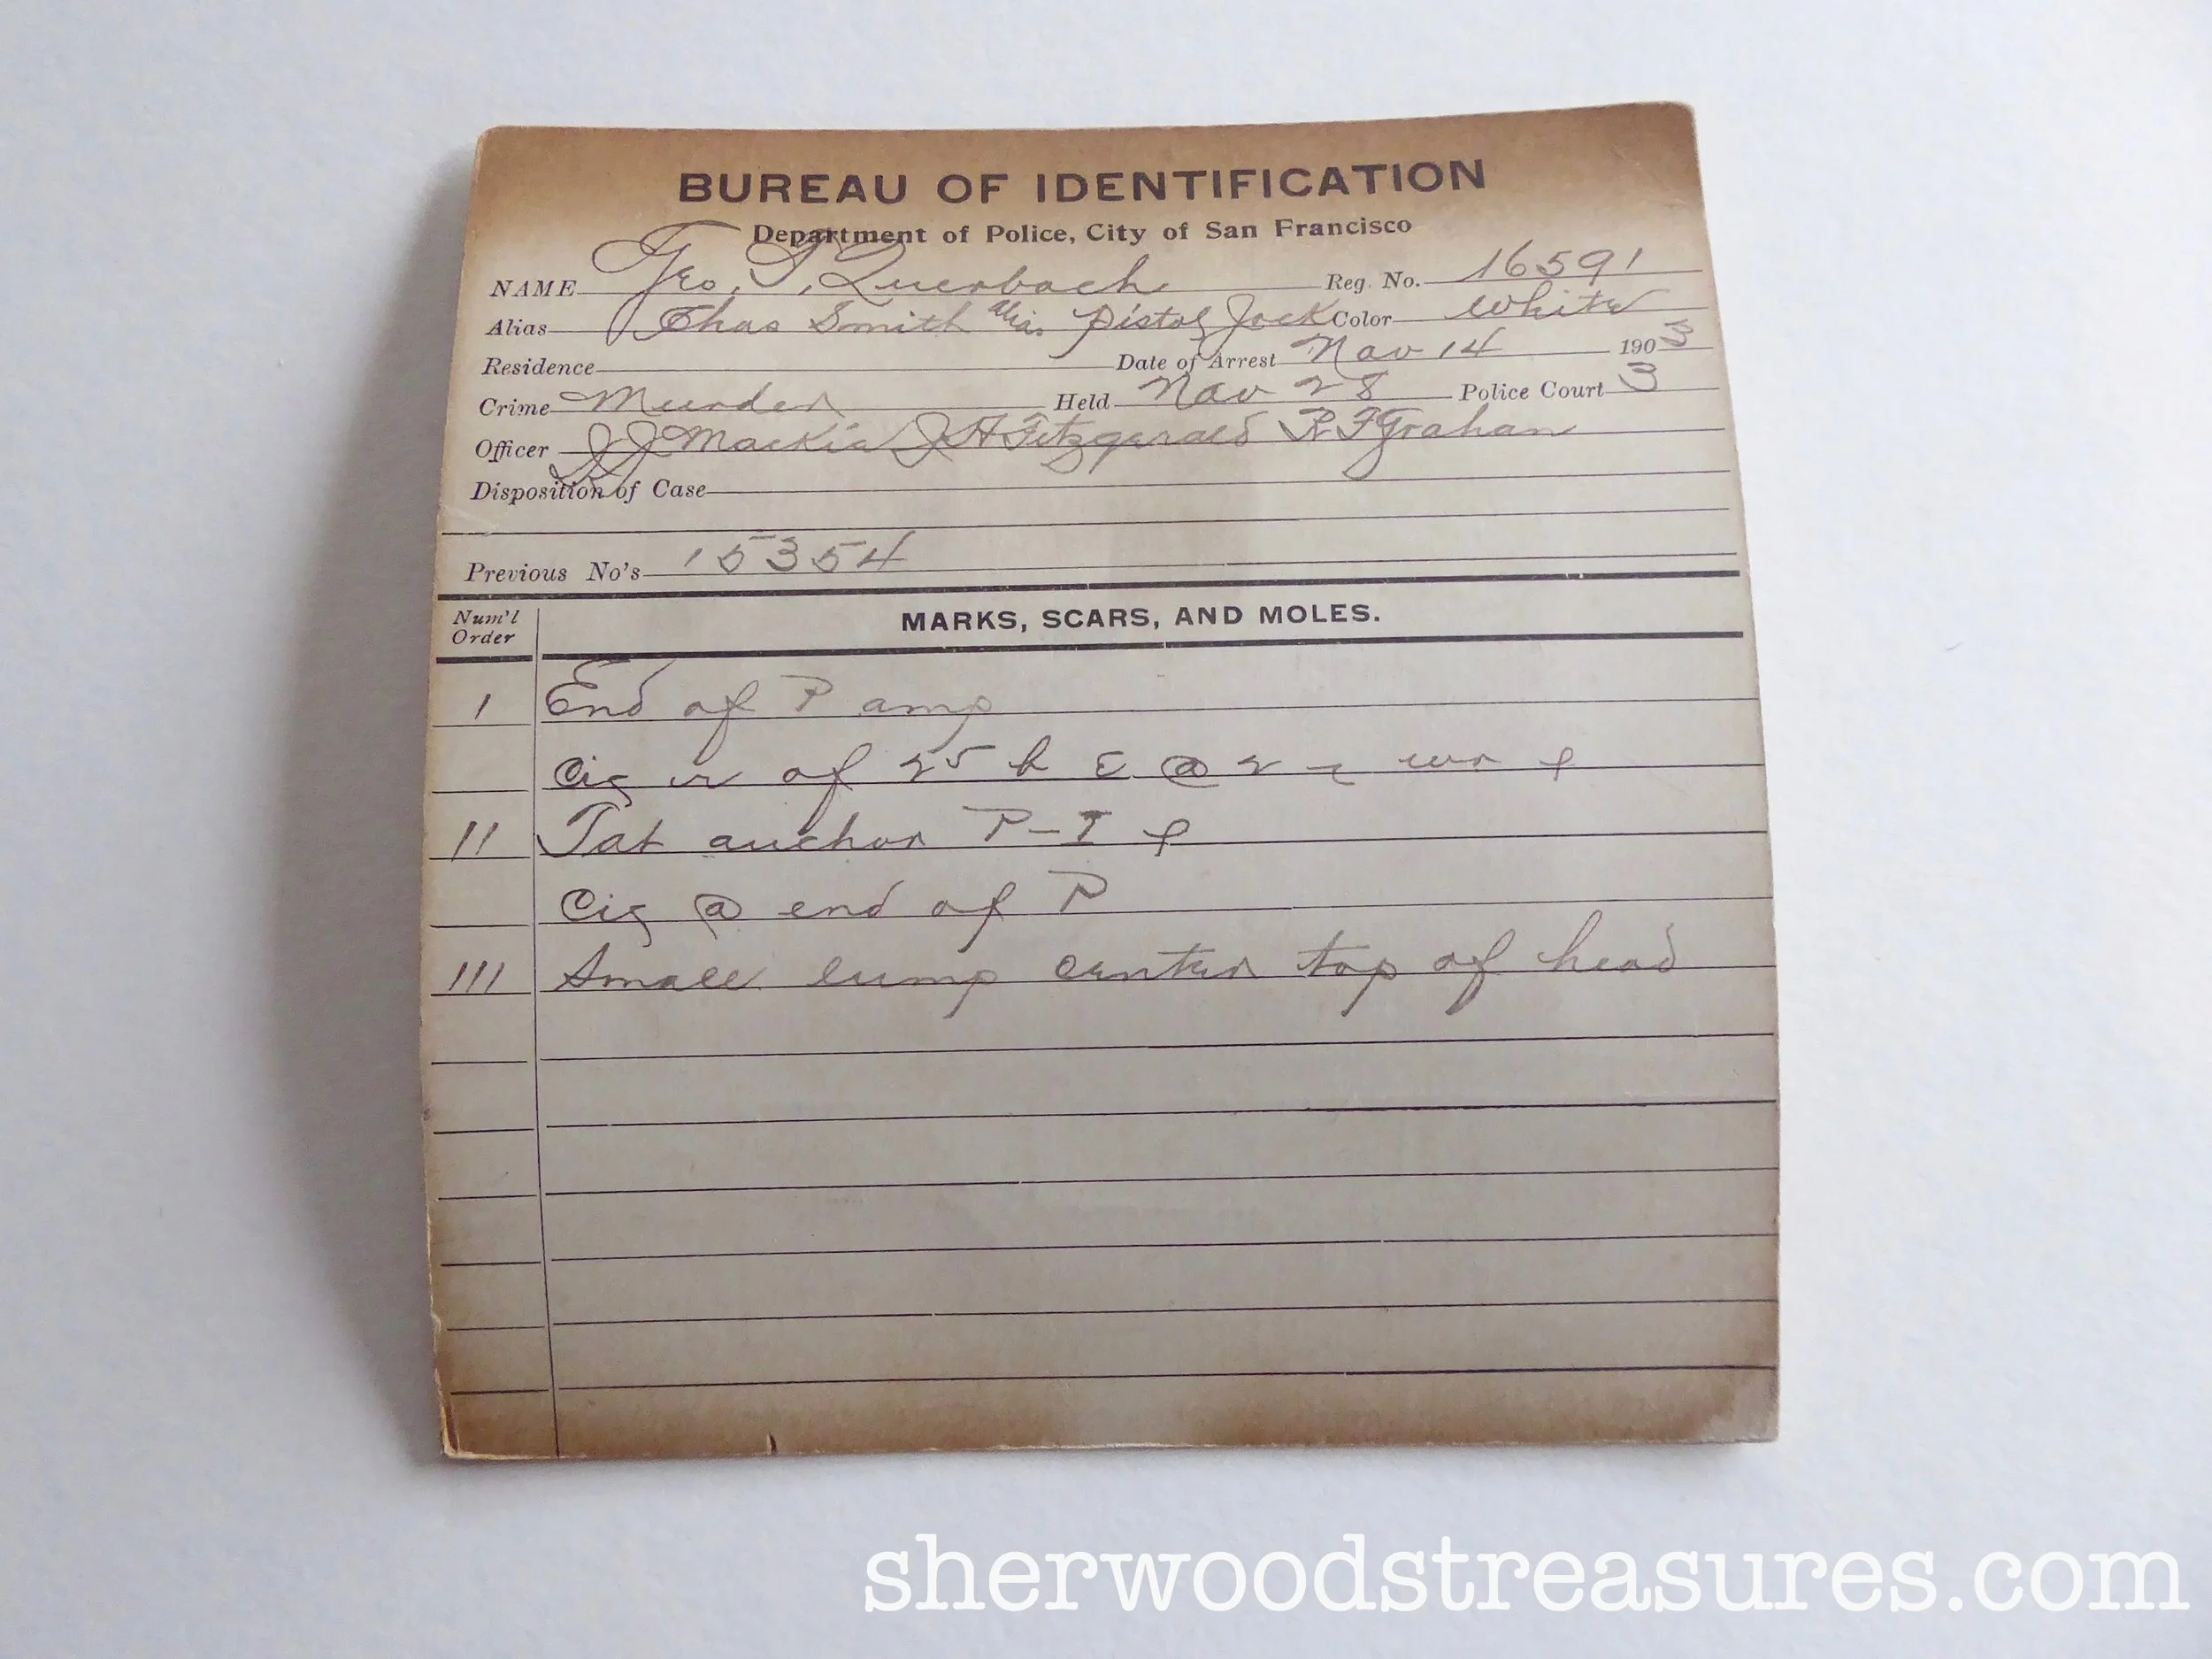 BUREAU OF IDENTIFICATION
Department of Police, City of San Francisco
NAME Geo. Reg. No. 16591
Alias Chas Smith Alias Pistol Jock Color White
Residence Date of Arrest Nov 14 1903
Crime Murder Held Nov 28 Police Court 3
Officer J J Mackie J H Fitzgerald R F Graham
Disposition of Case
Previous No's 15354
Num'l Order MARKS, SCARS, AND MOLES.
I End of amp
Cig of
II Tat anchor
Cig @ end of
III Small lump center top of head
sherwoodstreasures.com